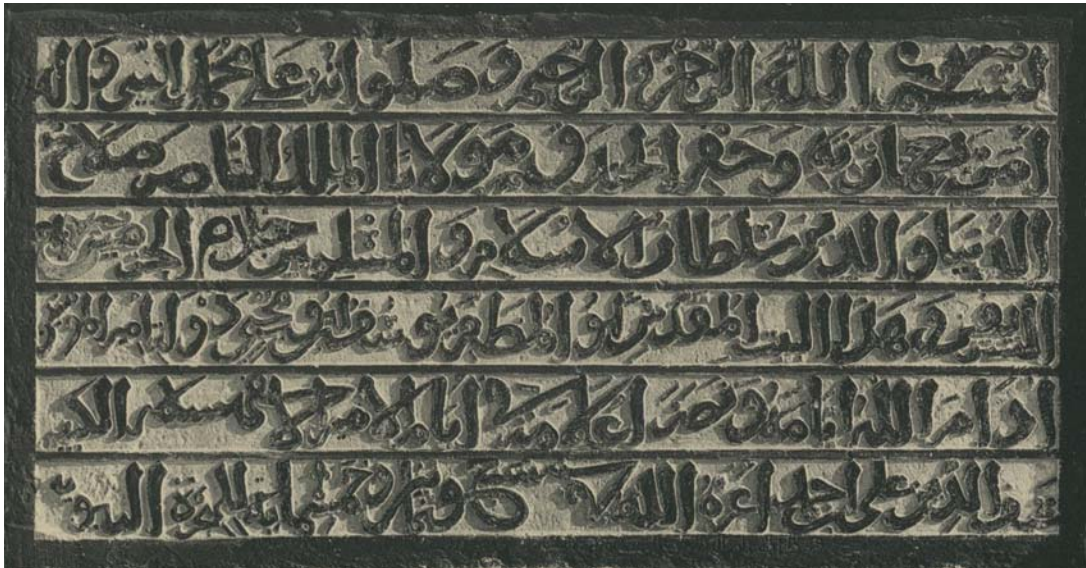 بسم الله الرحمن الرحيم وصلواته على محمد النبي وآله
أمر وحفر الخندق مولانا الملك الناصر صلاح
الدنيا والدين سلطان الاسلام والمسلمين خادم الحرمين
الشريفين وهذا البيت المقدس ابو المظفر يوسف بن ايوب محيي دولة امير المؤمنين
ادام الله ايامه ونصر اعلامه في ايام الامير الكبير
سيف الدين علي بن احمد اعزه الله في سنة سبع وثمانين وخمسمائة للهجرة النبوية